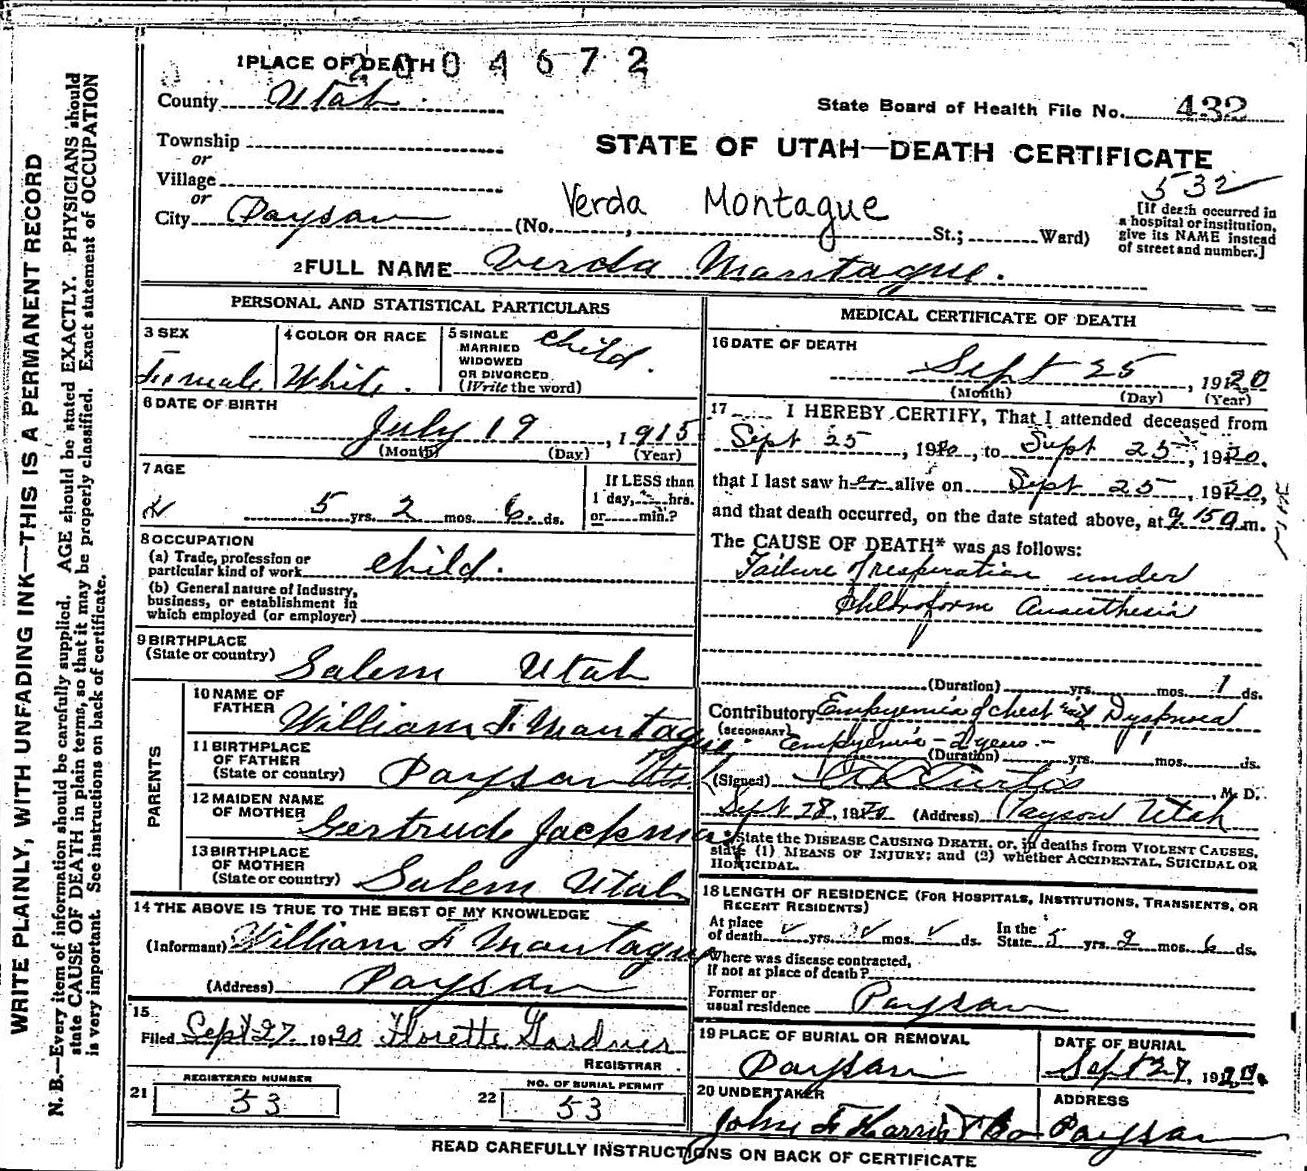 WRITE PLAINLY, WITH UNFADING INK—THIS IS A PERMANENT RECORD
N. B.—Every item of information should be carefully supplied. AGE should be stated EXACTLY. PHYSICIANS should
state CAUSE OF DEATH in plain terms, so that it may be properly classified. Exact statement of OCCUPATION
is very important. See instructions on back of certificate.
1 PLACE OF DEATH
2004672
County Utah
State Board of Health File No. 432
Township
or
STATE OF UTAH—DEATH CERTIFICATE
Village
532
or
Verda Montague
City Payson (No. , St.; Ward)
[If death occurred in
a hospital or institution,
give its NAME instead
of street and number.]
2 FULL NAME Verda Montague.
PERSONAL AND STATISTICAL PARTICULARS
3 SEX
Female
4 COLOR OR RACE
White.
5 SINGLE
MARRIED
WIDOWED
OR DIVORCED
(Write the word)
child.
6 DATE OF BIRTH
July 19, 1915
(Month) (Day) (Year)
7 AGE
5 yrs. 2 mos. 6 ds.
If LESS than
1 day, hrs.
or min.?
8 OCCUPATION
(a) Trade, profession or
particular kind of work child.
(b) General nature of Industry,
business, or establishment in
which employed (or employer)
9 BIRTHPLACE
(State or country)
Salem Utah
PARENTS
10 NAME OF
FATHER
William F. Montague
11 BIRTHPLACE
OF FATHER
(State or country)
Payson Utah
12 MAIDEN NAME
OF MOTHER
Gertrude Jackman
13 BIRTHPLACE
OF MOTHER
(State or country)
Salem Utah
14 THE ABOVE IS TRUE TO THE BEST OF MY KNOWLEDGE
(Informant) William F Montague
(Address) Payson
15
Filed Sept 27 1920 Florette Gardner
REGISTRAR
21 REGISTERED NUMBER
53
22 NO. OF BURIAL PERMIT
53
MEDICAL CERTIFICATE OF DEATH
16 DATE OF DEATH
Sept 25, 1920
(Month) (Day) (Year)
17 I HEREBY CERTIFY, That I attended deceased from
Sept 25, 1920, to Sept 25, 1920.
that I last saw her alive on Sept 25, 1920,
and that death occurred, on the date stated above, at 9 15 a m.
The CAUSE OF DEATH* was as follows:
Failure of respiration under
Chloroform Anaesthesia
(Duration) yrs. mos. 1 ds.
Contributory Empyemia of chest and Dyspnoea
(SECONDARY) Empyemia - 2 years.-
(Duration) yrs. mos. ds.
(Signed) Curtis, M. D.
Sept. 28, 1920 (Address) Payson Utah
*State the DISEASE CAUSING DEATH, or, in deaths from VIOLENT CAUSES,
state (1) MEANS OF INJURY; and (2) whether ACCIDENTAL, SUICIDAL OR
HOMICIDAL.
18 LENGTH OF RESIDENCE (FOR HOSPITALS, INSTITUTIONS, TRANSIENTS, OR
RECENT RESIDENTS)
At place
of death yrs. mos. ds. In the
State 5 yrs 9 mos. 6 ds.
Where was disease contracted,
if not at place of death?
Former or
usual residence Payson
19 PLACE OF BURIAL OR REMOVAL
Payson
DATE OF BURIAL
Sept 27, 1920.
20 UNDERTAKER
John F Harris & Co
ADDRESS
Payson
READ CAREFULLY INSTRUCTIONS ON BACK OF CERTIFICATE